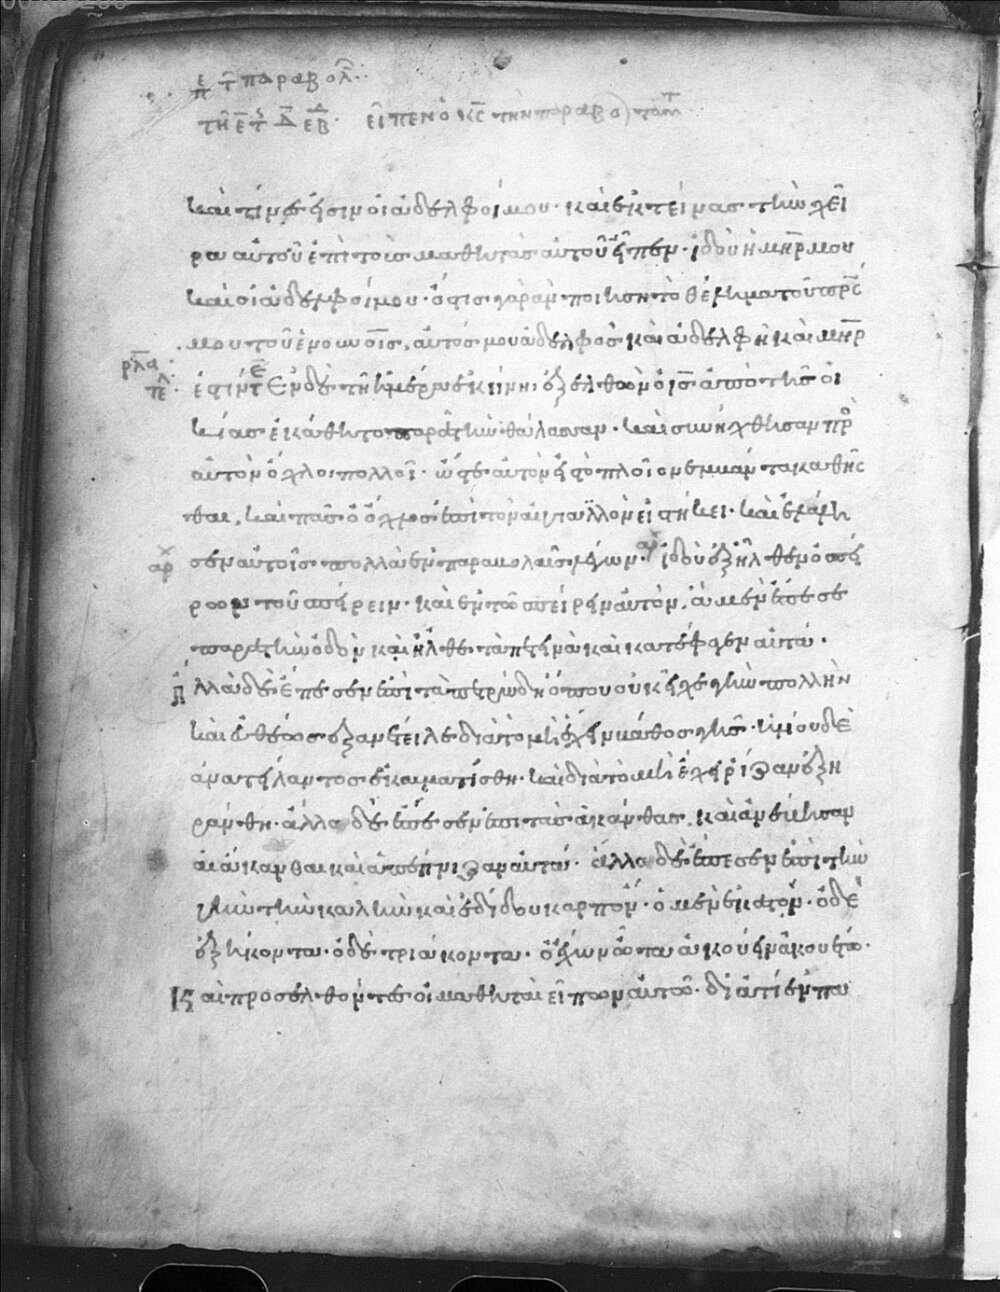 τῆ ε τ δ εβ· εἶπεν ὁ κς τὴν παραβο
καὶ τίνες εἰσιν οἱ ἀδελφοί μου· καὶ ἐκτείνας τὴν χεῖ
ρα αὐτοῦ ἐπὶ τοὺς μαθητὰς αὐτοῦ εἶπεν· ἰδοὺ ἡ μηρ μου
καὶ οἱ ἀδελφοί μου· ὅστις γὰρ ἂν ποιήση τὸ θέλημα τοῦ πρς
μου τοῦ ἐν οὐνοῖς, αὐτός μου ἀδελφὸς καὶ ἀδελφὴ καὶ μηρ
ρλα
τε
ἐστίν τε Ἐν δὲ τῆ ἡμέρα ἐκείνη, ἐξελθὼν ὁ ις ἀπὸ τῆς οἰ
κίας ἐκάθητο παρὰ τὴν θάλασσαν· καὶ συνήχθησαν πρ
αὐτὸν ὄχλοι πολλοί· ὥστε αὐτὸν εἰς τὸ πλοῖον ἐμβάντα καθῆσ
θαι, καὶ πᾶς ὁ ὄχλος ἐπὶ τὸν αἰγιαλὸν εἱστήκει· καὶ ἐλάλη
αρ
σεν αὐτοῖς πολλὰ ἐν παραβολαῖς λέγων· ἰδοὺ ἐξῆλθεν ὁ σπεί
ρων τοῦ σπείρειν· καὶ ἐν τῶ σπείρειν αὐτὸν, ἃ μὲν ἔπεσε
παρὰ τὴν ὁδὸν καὶ ἦλθε τὰ πετεινὰ καὶ κατέφαγεν αὐτά·
ἄλλα δὲ ἔπεσεν ἐπὶ τὰ πετρώδη ὅπου οὐκ εἶχε γῆν πολλὴν
καὶ εὐθέως ἐξανέτειλε διὰ τὸ μὴ ἔχειν βάθος γῆς· ἡλίου δὲ
ἀνατείλαντος ἐκαυματίσθη· καὶ διὰ τὸ μὴ ἔχειν ῥίζαν ἐξη
ράνθη· ἄλλα δὲ ἔπεσεν ἐπὶ τὰς ἀκάνθας, καὶ ἀνέβησαν
αἱ ἄκανθαι καὶ ἀπέπνιξαν αὐτά· ἄλλα δὲ ἔπεσεν ἐπὶ τὴν
γῆν τὴν καλὴν καὶ ἐδίδου καρπόν· ὃ μὲν ἑκατόν· ὃ δὲ
ἑξήκοντα· ὃ δὲ τριάκοντα· ὁ ἔχων ὦτα ἀκούειν ἀκουέτω·
Καὶ προσελθόντες οἱ μαθηταὶ εἶπον αὐτῶ· διατί ἐν πα